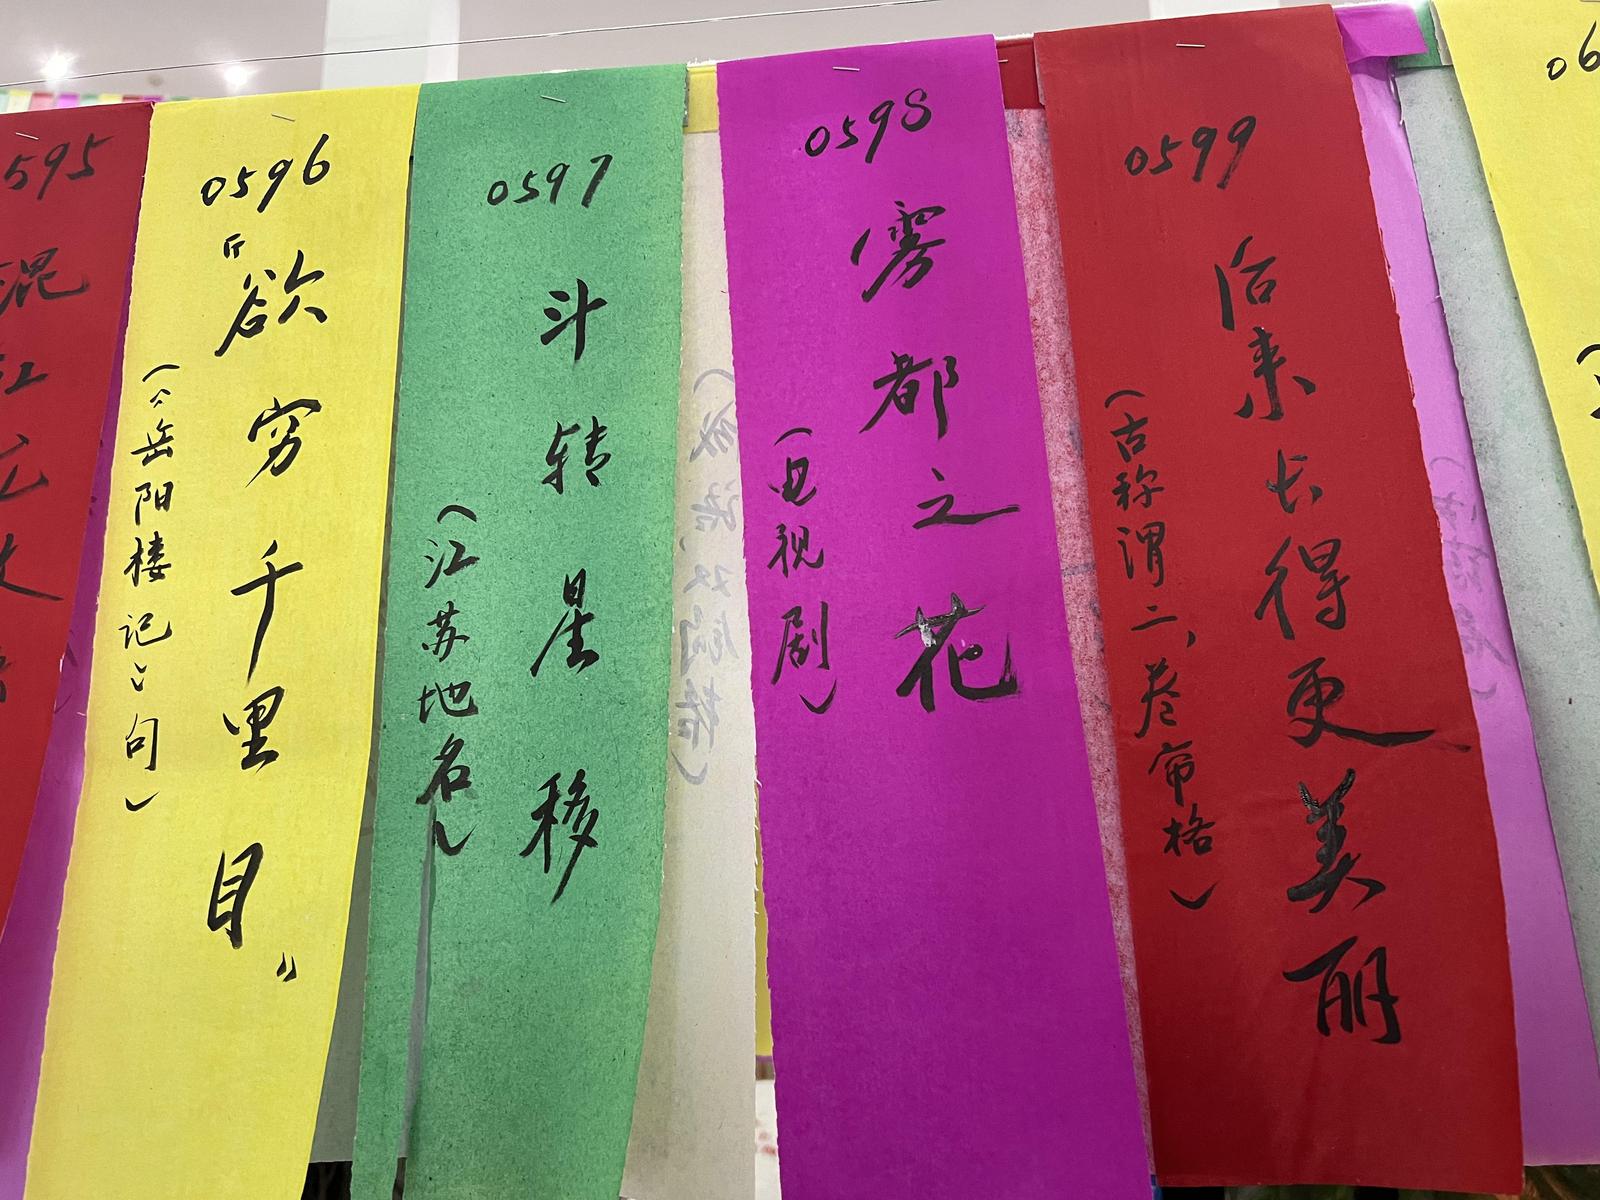 595
混
江
0596
“欲穷千里目”
(《岳阳楼记》句)
0597
斗转星移
(江苏地名)
0598
雾都之花
(电视剧)
0599
后来长得更美丽
(古称谓二,卷帘格)
06